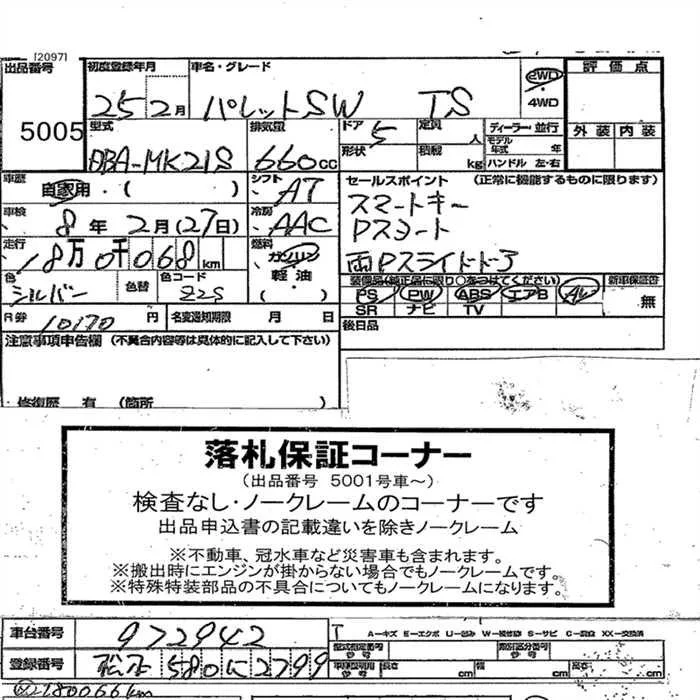 [2097]
出品番号 初度登録年月 車名・グレード 2WD 評価点
5005 25 2月 パレットSW TS 4WD
型式 排気量 ドア 5 定員 人 ディーラー・並行 外装 内装
DBA-MK21S 660cc 形状 積載 kg モデル年式 年 ハンドル 左・右
車歴 自家用・( ) シフト AT セールスポイント (正常に機能するものに限ります)
車検 8年2月(27日) 冷房 AAC スマートキー
Pスタート
走行 18万0千068km 燃料 ガソリン 軽油・( ) 両Pスライドドア
色 シルバー 色替 色コード Z2S 装備品(純正品に限り○をつけてください) 新車保証書
PS PW ABS エアB AW 無
SR ナビ TV
R券 10170円 名変通知期限 月 日 後日品
注意事項申告欄 (不具合内容等は具体的に記入して下さい)
・修復歴 有 (箇所 )
落札保証コーナー
(出品番号 5001号車~)
検査なし・ノークレームのコーナーです
出品申込書の記載違いを除きノークレーム
※不動車、冠水車など災害車も含まれます。
※搬出時にエンジンが掛からない場合でもノークレームです。
※特殊特装部品の不具合についてもノークレームになります。
車台番号 972942 A-キズ E-エクボ U-凹み W-補修跡 S-サビ C-腐食 XX-交換済
登録番号 松本 580 に 2799 型式指定番号 類別区分番号
長さ cm 幅 cm 高さ cm
180066km